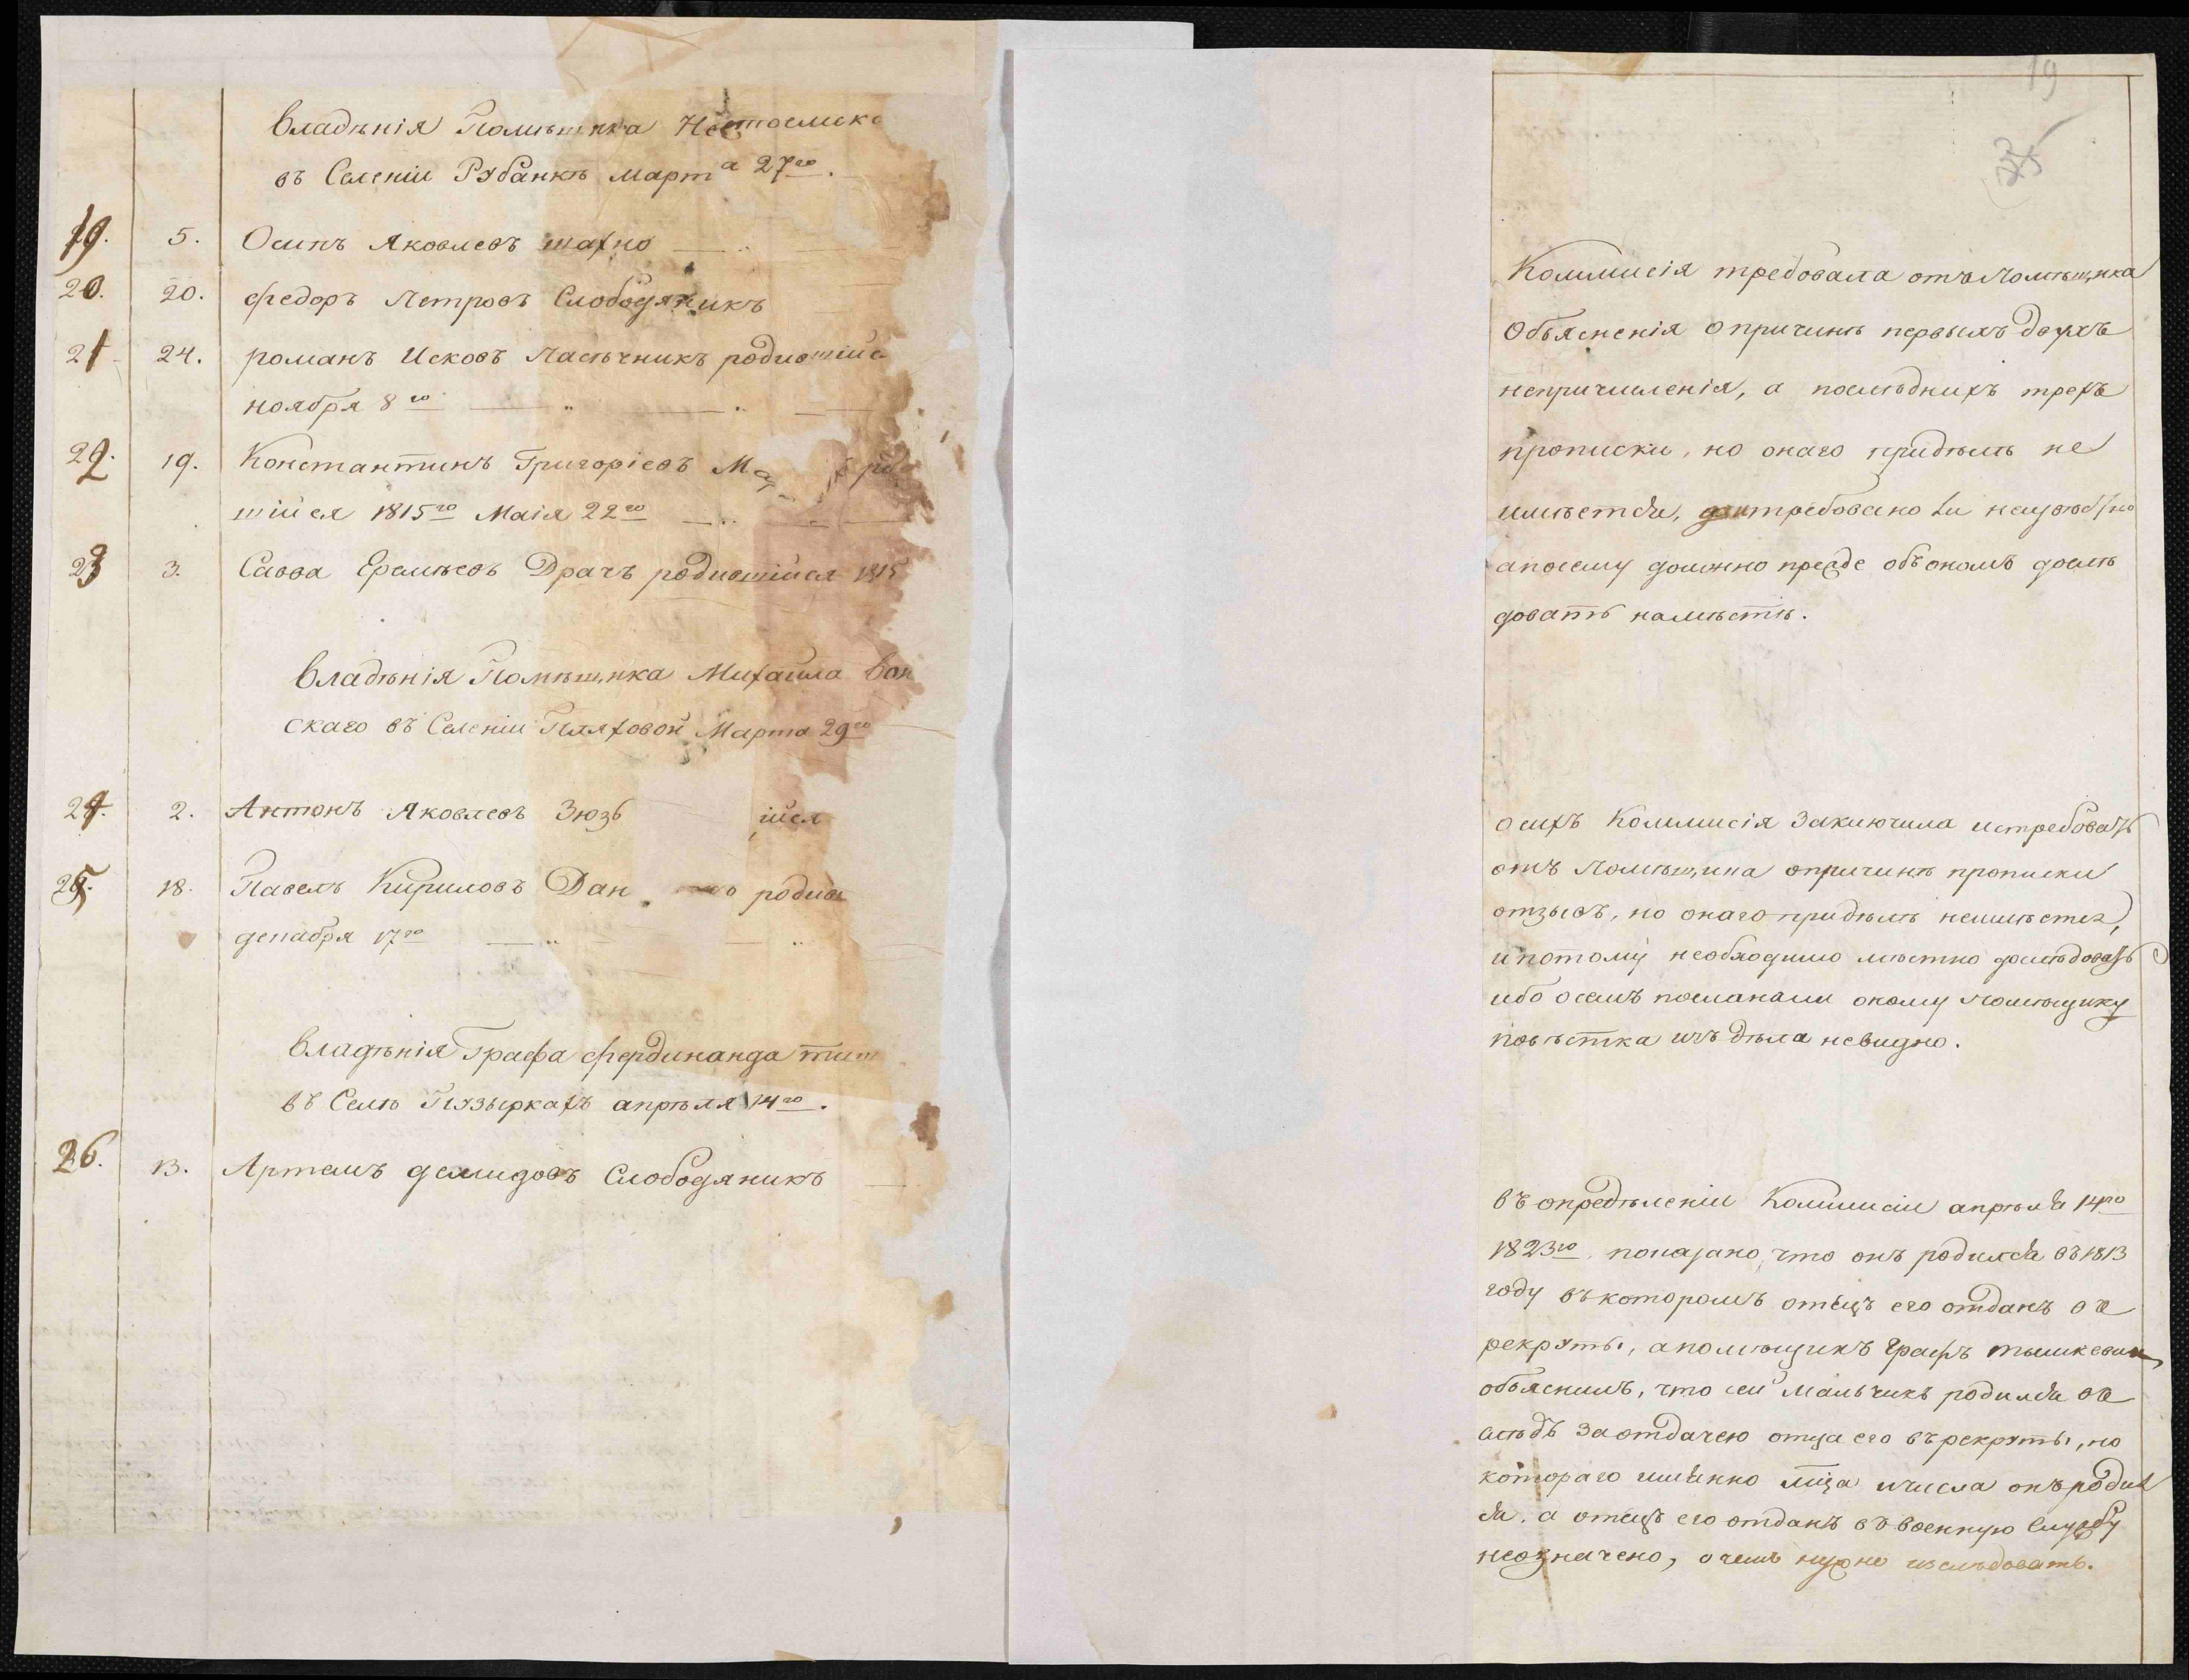 Владѣнія Помѣщика
въ Селеніи Рубанкѣ Марта 27го.
19. 5. Осипъ Яковлевъ Шахно
20. 20. Федоръ Петровъ Слободяникъ
21 24. Романъ Исковъ Пасѣчникъ родившійс
ноября 8го
22. 19. Константинъ Григоріевъ
шійся 1815го Маія 22го
23 3. Савва Еремѣевъ Драчъ родившійся 1815
Владѣнія Помѣщика Михаила
скаго въ Селеніи Пляховой Марта 29го
24. 2. Антонъ Яковлевъ Зюзь ійся
25. 18. Павелъ Кириловъ Дан о родив
декабря 17го
Владѣнія Графа Фердинанда Тиш
въ Селѣ Пузыркахъ апрѣля 14го.
26. 13. Артемъ Демидовъ Слободяникъ
19
Коммисія требовала отъ Помѣщика
Объясненія опричинѣ первыхъ двухъ
непричисленія, а послѣднихъ трехъ
прописки, но онаго придѣлѣ не
имѣется, требовано ли
апосему должно прежде объ ономъ дослѣ
довать намѣстѣ.
осихъ Коммисія Заключила истребовать
отъ Помѣщика опричинѣ прописки
отзывъ, но онаго придѣлѣ неимѣется,
ипотому необходимо мѣстно дослѣдовать
ибо осемъ посланали оному Помѣщику
повѣстка изъ дѣла невидно.
въ опредѣленіи Коммисіи апрѣля 14го
1823го показано, что онъ родился въ 1813
году въ которомъ отецъ его отданъ въ
рекруты, апомѣщикъ Графъ Тышкевичь
объяснилъ, что сей Мальчикъ родился въ
слѣдъ Заотдачею отца его врекруты, но
котораго именно мца ичисла онъ родил
ся, а отецъ его отданъ въ военную Службу
неозначено, о чемъ нужно изслѣдовать.